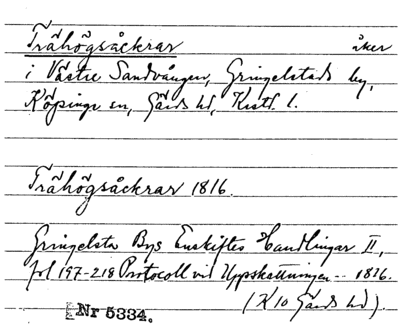 Trähögsåckrar åker
i Västre Sandvången, Gringelstads by,
Köpinge sn, Gärds hd, Krstd. l.
Trähögsåckrar 1816.
Gringelsta Bys Enskiftes Handlingar II,
fol 197-218 Protocoll vid Uppskattningen -- 1816.
(K 10 Gärds hd).
Nr 5334.